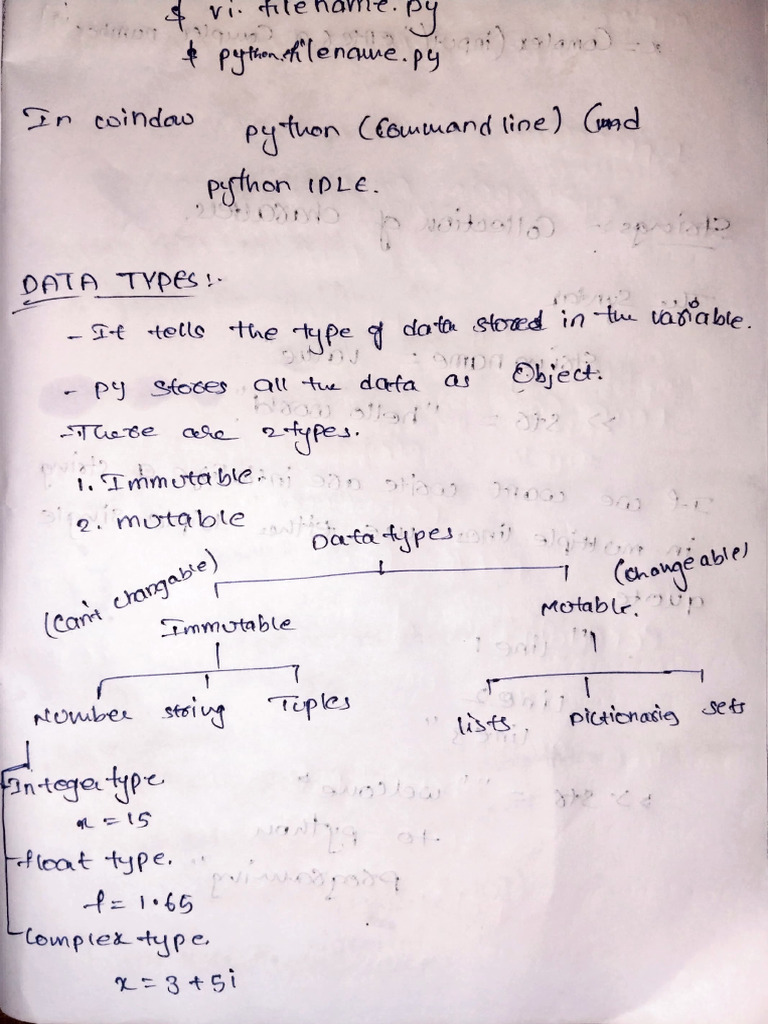 $ vi. filename.py
$ python filename.py
In window python (Command line) (and
python IDLE.
DATA TYPES:-
- It tells the type of data stored in the variable.
- py stores all the data as Object.
- There are 2 types.
1. Immutable.
2. mutable
Datatypes
(Can't changable) (Changeable)
Immutable Mutable.
Number string Tuples lists Dictionaries sets
Integer type
x = 15
float type.
f = 1.65
Complex type.
x = 3 + 5i